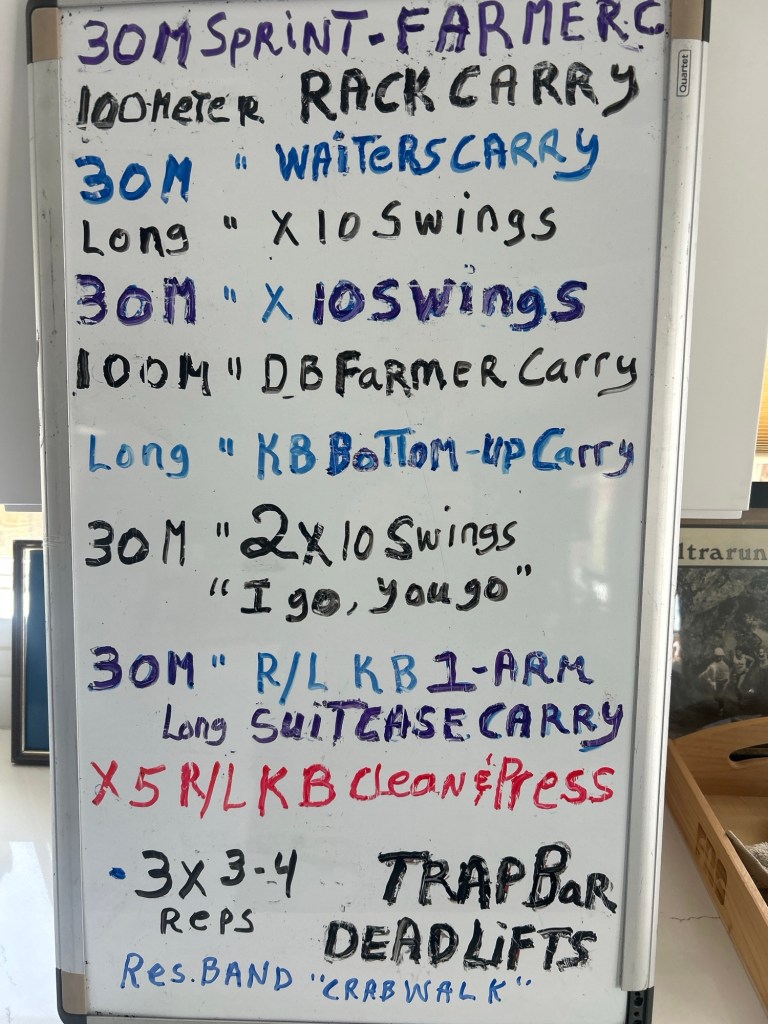 30M SPRINT-FARMER C
100 METER RACK CARRY
30M " WAITERS CARRY
Long " X 10 Swings
30M " X 10 Swings
100M " DB FARMER Carry
Long " KB Bottom-up Carry
30M " 2X10 Swings
"I go, you go"
30M " R/L KB 1-ARM
Long SUITCASE CARRY
X 5 R/L KB Clean & Press
• 3X 3-4 TRAP BAR
REPS DEADLIFTS
Res. BAND "CRAB WALK"
Quartet
ltrarun